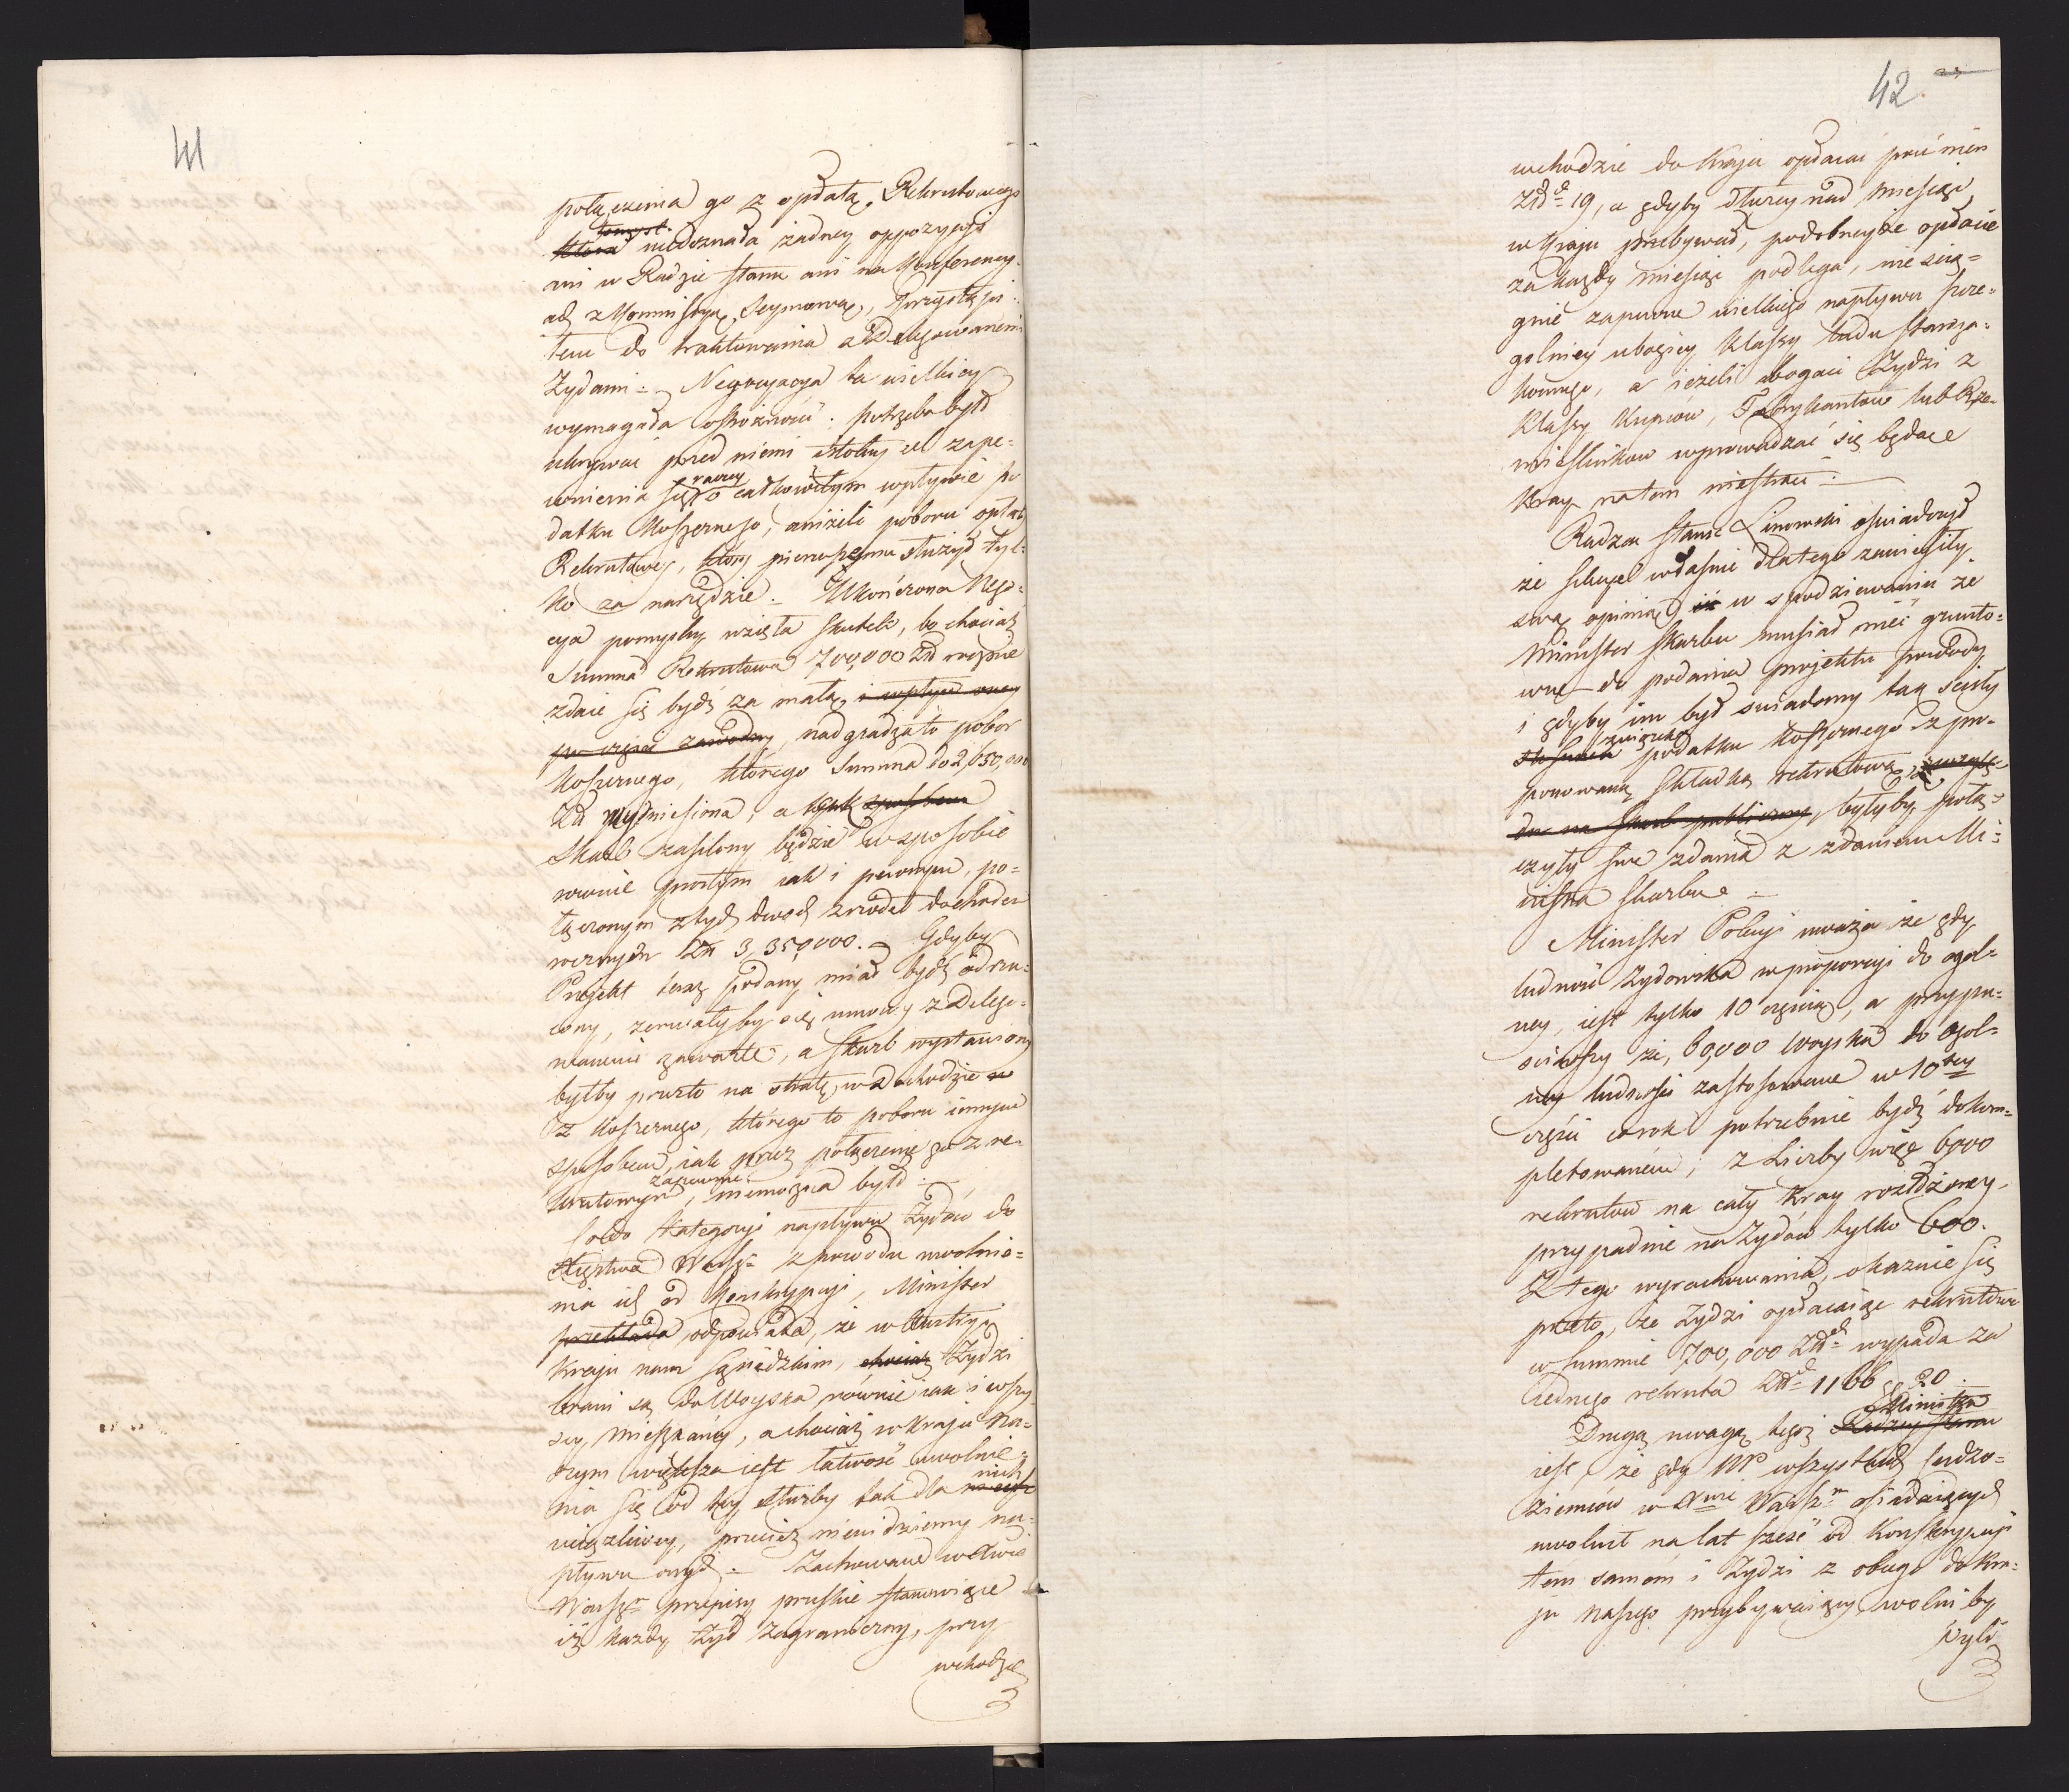 41
połączenia go z opłatą Rekrutowego
tenże
która niedoznała żadney oppozycyi
ani w Radzie Stanu ani na Konferency-
ach z Kommissyą Seymową, Przystąpi-
łem do traktowania z Delegowanemi
Żydami. Negocyacya ta wielkiey
wymagała ostrożności: potrzeba było
ukrywać przed niemi istotny cel zape-
raczey
wnienia się o całkowitym wpływie po
datku Koszernego, aniżeli poboru opłaty
Rekrutowey, który pierwszemu służył tyl-
ko za narzędzie. Ukończona Nego-
cya pomyślny wzięła skutek, bo chociaż
Summa Rekrutowa 700,000 Zł może
zdaie się bydź za małą, i wpływ oney
po części zawodny, nadgradza to pobor
Koszernego, którego Summa do 2,650,000
Zł podniesiona; a tak sposobem
Skarb zasilony będzie w sposobie
rownie prostym iak i pewnym, po-
łączonym z tych dwoch zrzodeł dochodem
rocznym Zł 3,350,000. Gdyby
Projekt teraz podany miał bydź odrzu-
cony, zerwałyby się umowy z Delego-
wanemi zawarte, a Skarb wystawiony
byłby przeto na stratę w dochodzie w
z Koszernego, którego to poboru innym
sposobem, iak przez połączenie go z re-
zapewnić
krutowym, niemożna było.
Co do kategoryi napływu Żydów do
Xięstwa Warszo z powodu uwolnie-
nia ich od Konskrypcyi, Minister
przekłada odpowiada, że w Austryi
Kraju nam sąsiedzkim, chociaż Żydzi
brani są do Woyska równie iak i wszy-
scy Mieszkańcy, a chociaż w kraju na-
szym większa iest łatwość uwolnie-
nich
nia się od tey służby tak dla
uciążliwey, przecież niewidziemy na-
pływu onych. Zachowane w Xtwie
Warszo przepisy pruskie stanowiące
iż każdy żyd zagraniczny, przy
wchodzie
42
wchodzie do Kraju opłacać powinien
Złch 19, a gdyby dłużey nad Miesiąc
w Kraju przebywał, podobneyże opłacie
za każdy miesiąc podlega, nie ścią-
gnie zapewne wielkiego napływu szcze-
gólniey uboższey Klassy ludu starza-
konnego, a ieżeli bogaci Żydzi z
Klassy Kupców, Fabrykantów lub Rze-
mieślników wprowadzać się będą
Kray na tem nie straci.
Radzca Stanu Linowski oświadczył
że Sekcye właśnie dlatego zawiesiły
swą opinią iż w spodziewaniu że
Minister Skarbu musiał mieć grunto-
wne do podania projektu powody
i gdyby im był wiadomy tak ścisły
związek
stosunek podatku Koszernego z pro-
ponowaną składką rekrutową,
na Skarb publiczny, byłyby połą-
czyły swe zdania z zdaniem Mi-
nistra Skarbu.
Minister Policyi uważa że gdy
ludność Żydowska w proporcyi do ogol-
ney, iest tylko 10 częścią, a przypu-
ściwszy że, 60,000 Woyska do ogol-
ney ludności zastosowane w 10tey
części corok potrzebnie bydź dokom-
pletowanem, z Liczby więc 6,000
rekrutów na cały Kray rozłożoney
przypadnie na Żydów tylko 600.
Z tego wyrachowania, okazuie się
przeto, że Żydzi opłacaiąc rekrutowe
w Summie 700,000 Złch wypada za
iednego rekruta Złch 1166 gr 20.
Ministra
Drugą uwagą tegoż Radzcy Stanu
iest, że gdy NP. wszystkich Cudzo-
ziemców w Xtwie Warszm osiadaiących
uwolnił na lat sześć od Konskrypcyi
tem samem i Żydzi z obcego do kra-
ju naszego przybywaiący, wolni by
byli